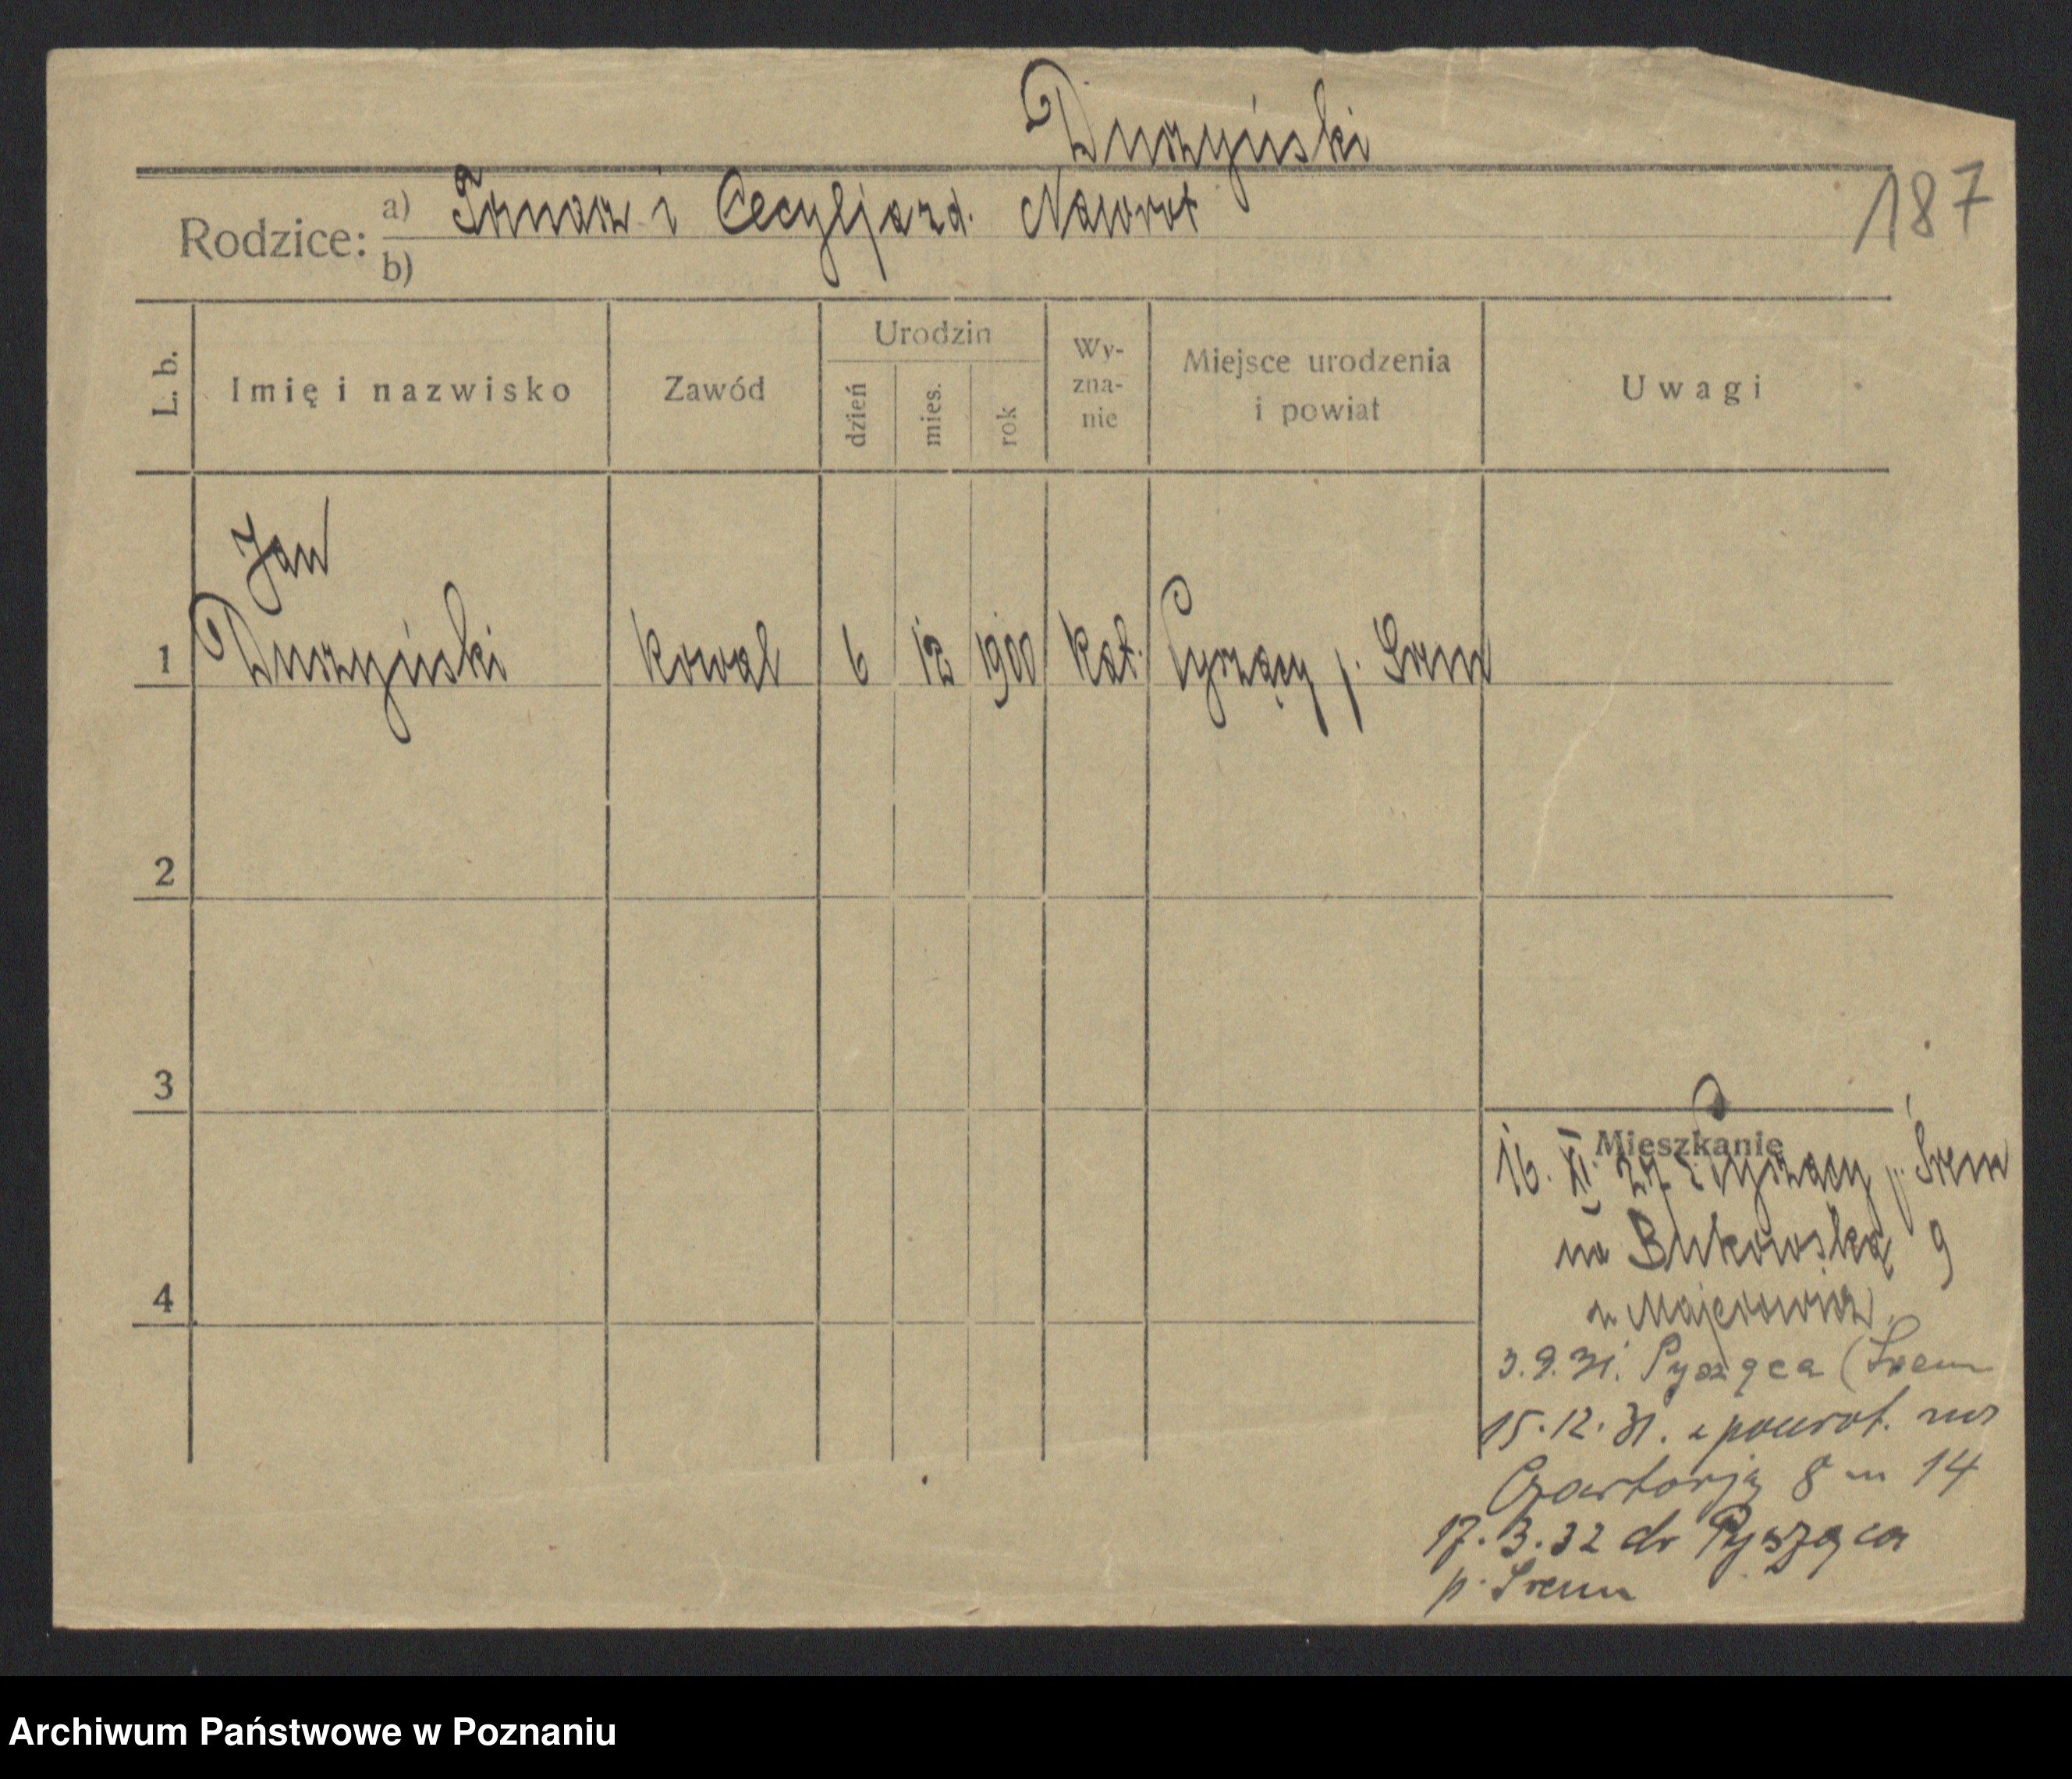 Duszyński
187
Rodzice: a) Tomasz i Cecylja zd. Nawrot
b)
L. b. Imię i nazwisko Zawód Urodzin dzień mies. rok Wy-zna-nie Miejsce urodzenia i powiat Uwagi
Jan
1 Duszyński kowal 6 12 1900 kat. Pyszący p. Srem
2
3
4
Mieszkanie
16. XI. 27 z Pyszący p. Śrem
na Bukowską 9
u Majerowicz
3.9.31. Pysząca (Śrem
15.12.31. z powrot. na
Czartorją 8 m 14
17.3.32 do Pysząca
p. Śrem
Archiwum Państwowe w Poznaniu